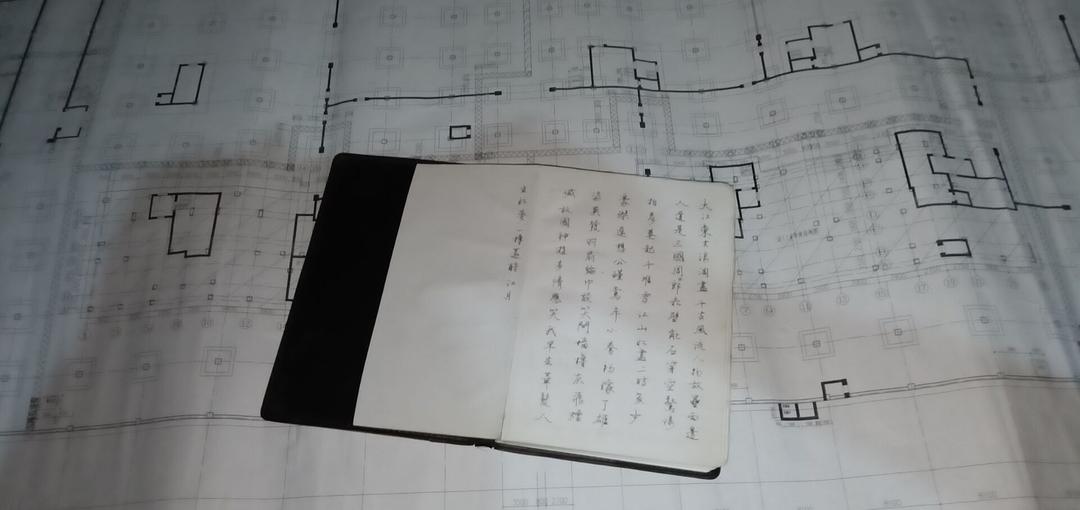 大江東去浪淘盡千古風流人物故壘西邊
人道是三國周郎赤壁亂石穿空驚濤
拍岸卷起千堆雪江山如畫一時多少
豪傑遙想公瑾當年小喬初嫁了雄
姿英發羽扇綸巾談笑間檣櫓灰飛煙
滅故國神遊多情應笑我早生華髮人
生如夢一樽還酹江月